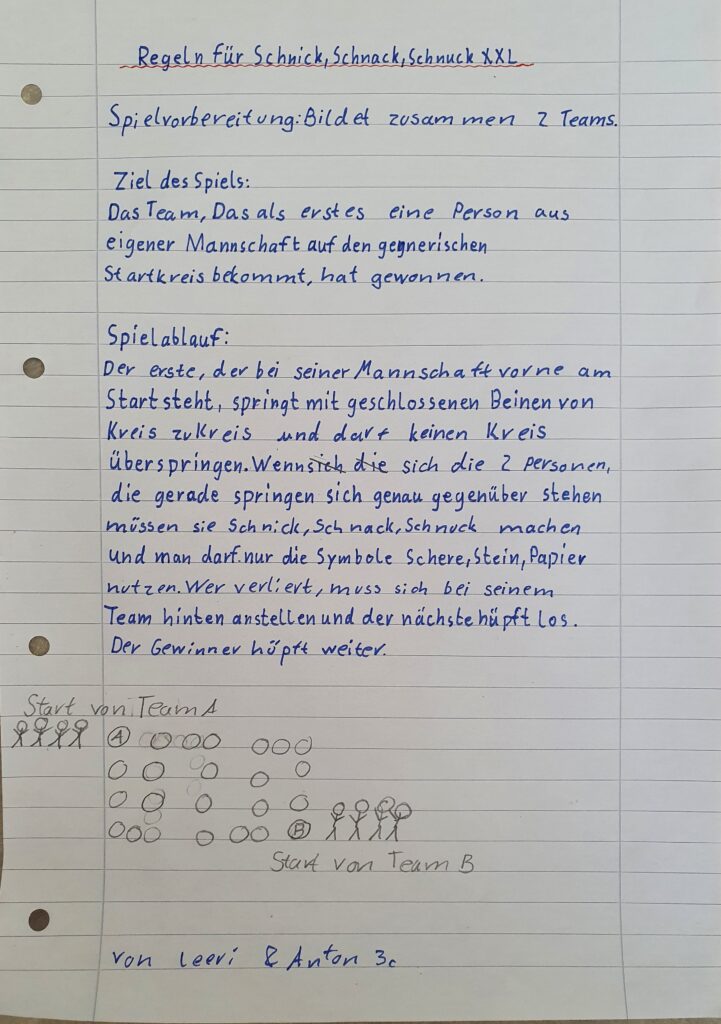 Regeln für Schnick, Schnack, Schnuck XXL
Spielvorbereitung: Bildet zusammen 2 Teams.
Ziel des Spiels:
Das Team, Das als erstes eine Person aus
eigener Mannschaft auf den gegnerischen
Startkreis bekommt, hat gewonnen.
Spielablauf:
Der erste, der bei seiner Mannschaft vorne am
Start steht, springt mit geschlossenen Beinen von
Kreis zu Kreis und darf keinen Kreis
überspringen. Wenn sich die sich die 2 Personen,
die gerade springen sich genau gegenüber stehen
müssen sie Schnick, Schnack, Schnuck machen
und man darf nur die Symbole Schere, Stein, Papier
nutzen. Wer verliert, muss sich bei seinem
Team hinten anstellen und der nächste hüpft los.
Der Gewinner hüpft weiter.
Start von Team A
A
B
Start von Team B
von Leevi & Anton 3c